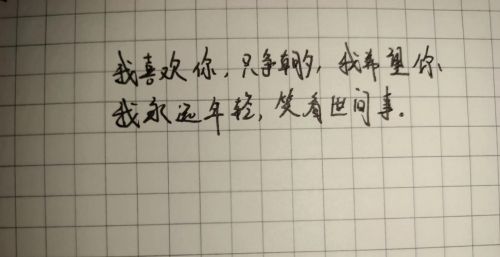 我喜欢你，只争朝夕，我希望你、
我永远年轻，笑看世间事。